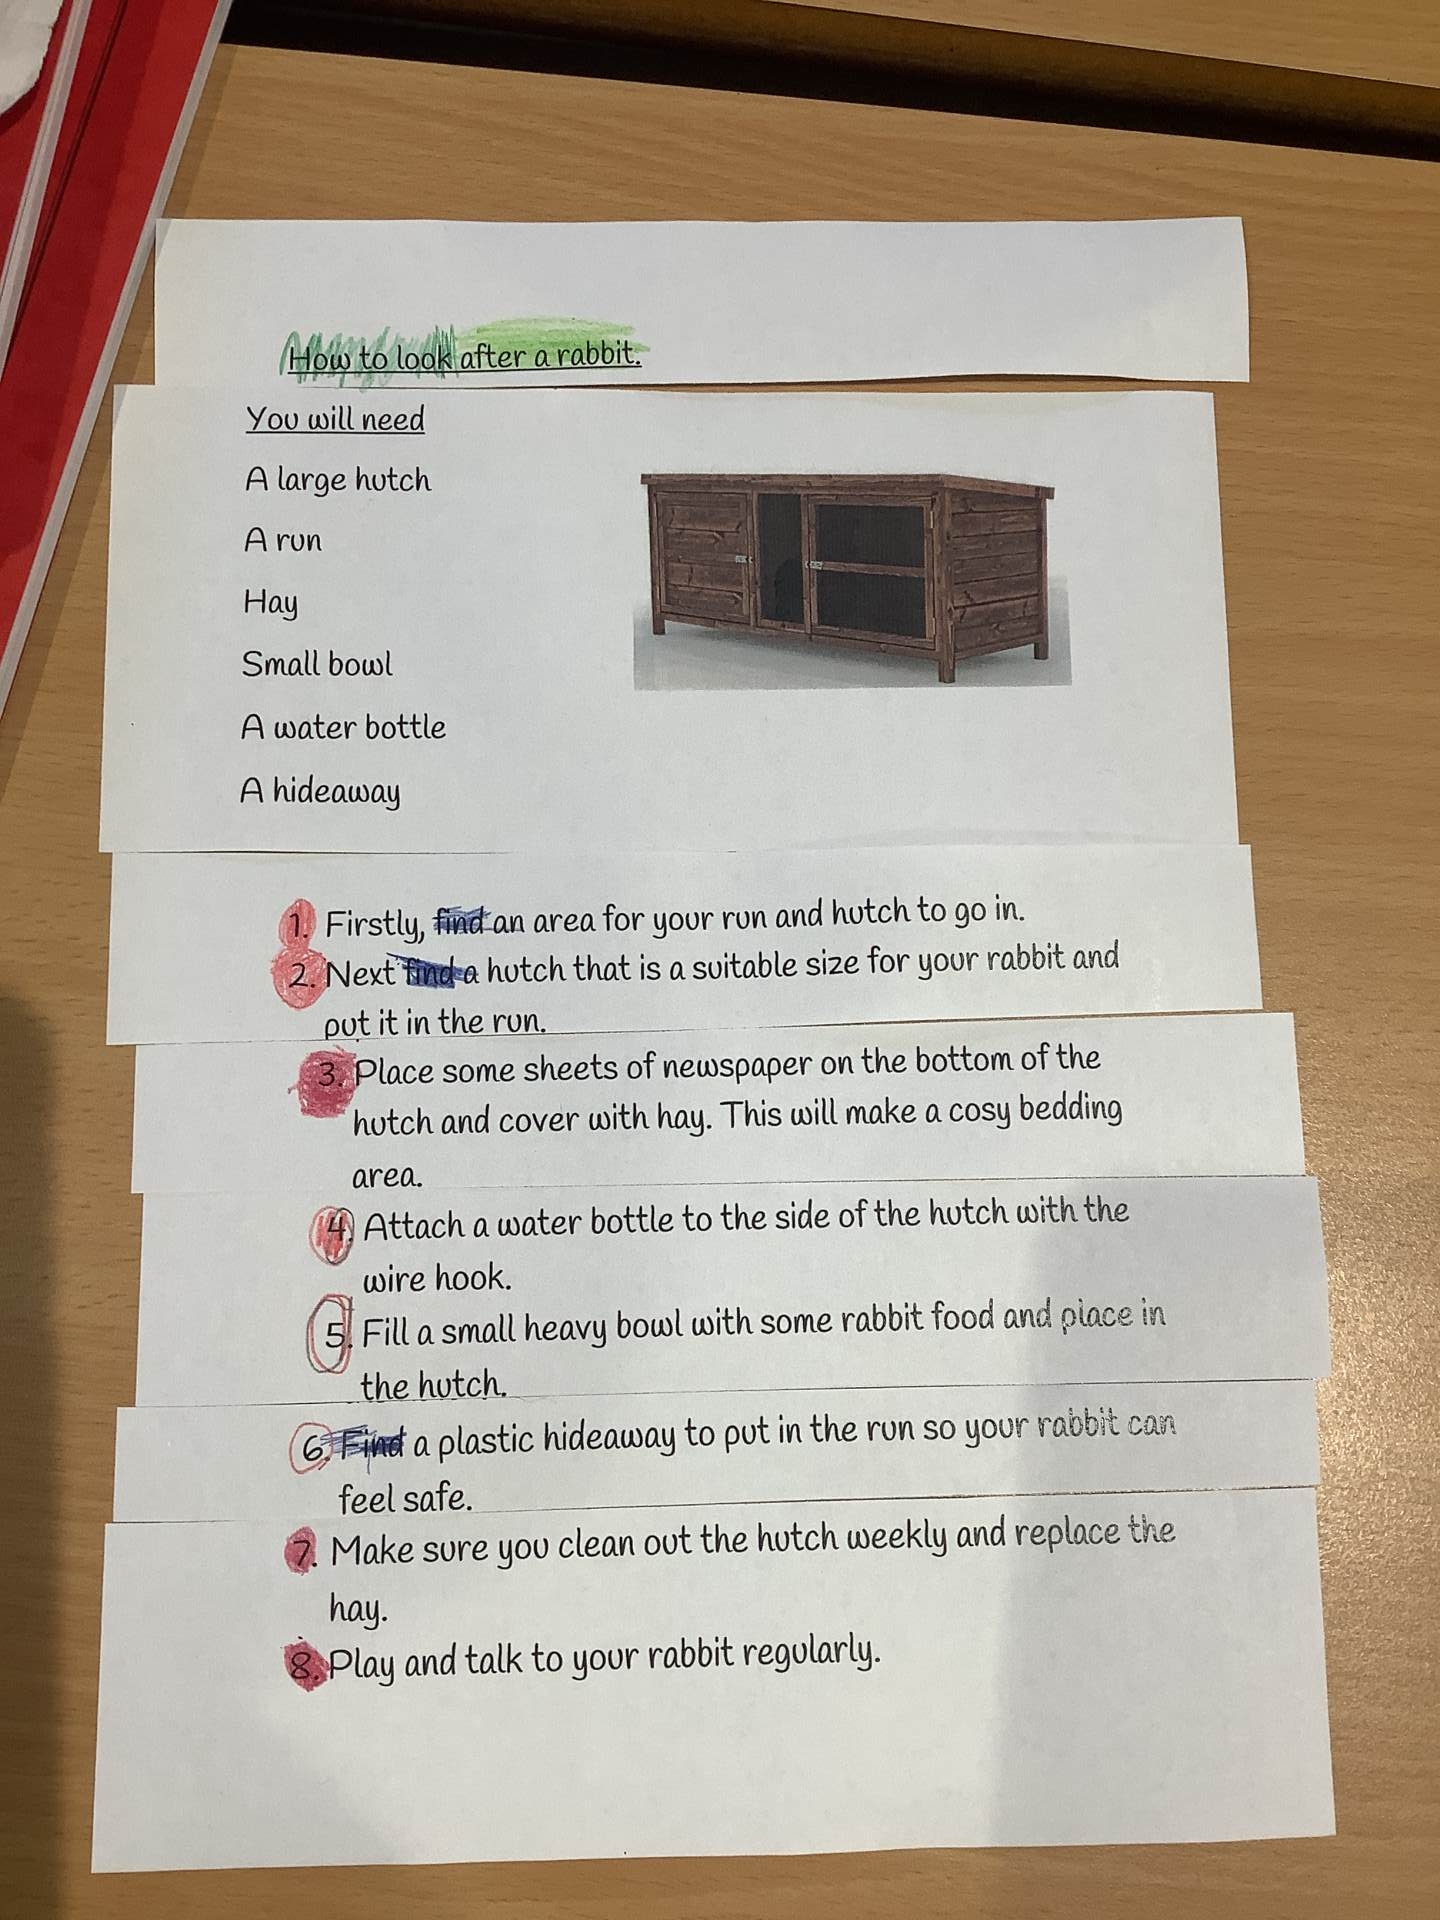 How to look after a rabbit.
You will need
A large hutch
A run
Hay
Small bowl
A water bottle
A hideaway
1. Firstly, find an area for your run and hutch to go in.
2. Next find a hutch that is a suitable size for your rabbit and
put it in the run.
3. Place some sheets of newspaper on the bottom of the
hutch and cover with hay. This will make a cosy bedding
area.
4. Attach a water bottle to the side of the hutch with the
wire hook.
5. Fill a small heavy bowl with some rabbit food and place in
the hutch.
6. Find a plastic hideaway to put in the run so your rabbit can
feel safe.
7. Make sure you clean out the hutch weekly and replace the
hay.
8. Play and talk to your rabbit regularly.